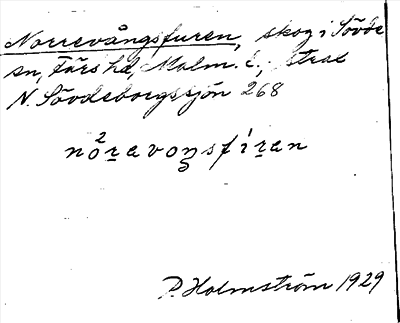 Norrevångsfuren, skog i Sövde
sn, Färs hd, Malm. l., strax
N. Sövdeborgssjön 268
no²ravoŋsfiran
P. Holmström 1929